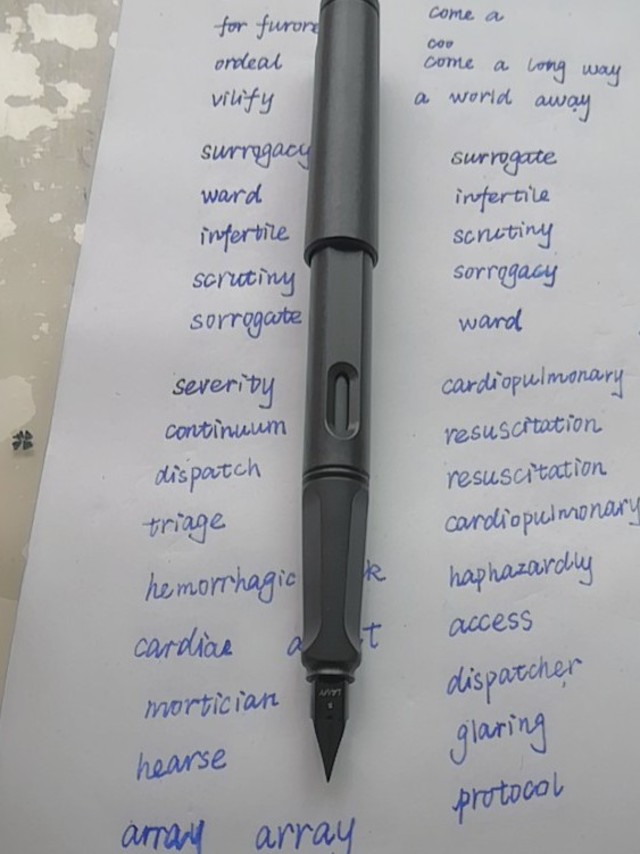 for furore
come a
coo
ordeal
come a long way
vilify
a world away
surrogacy
surrogate
ward
infertile
infertile
scrutiny
scrutiny
sorrogacy
sorrogate
ward
severity
cardiopulmonary
continuum
resuscitation
dispatch
resuscitation
triage
cardiopulmonary
hemorrhagic
haphazardly
cardiac
access
mortician
dispatcher
hearse
glaring
protocol
array array
LAMY